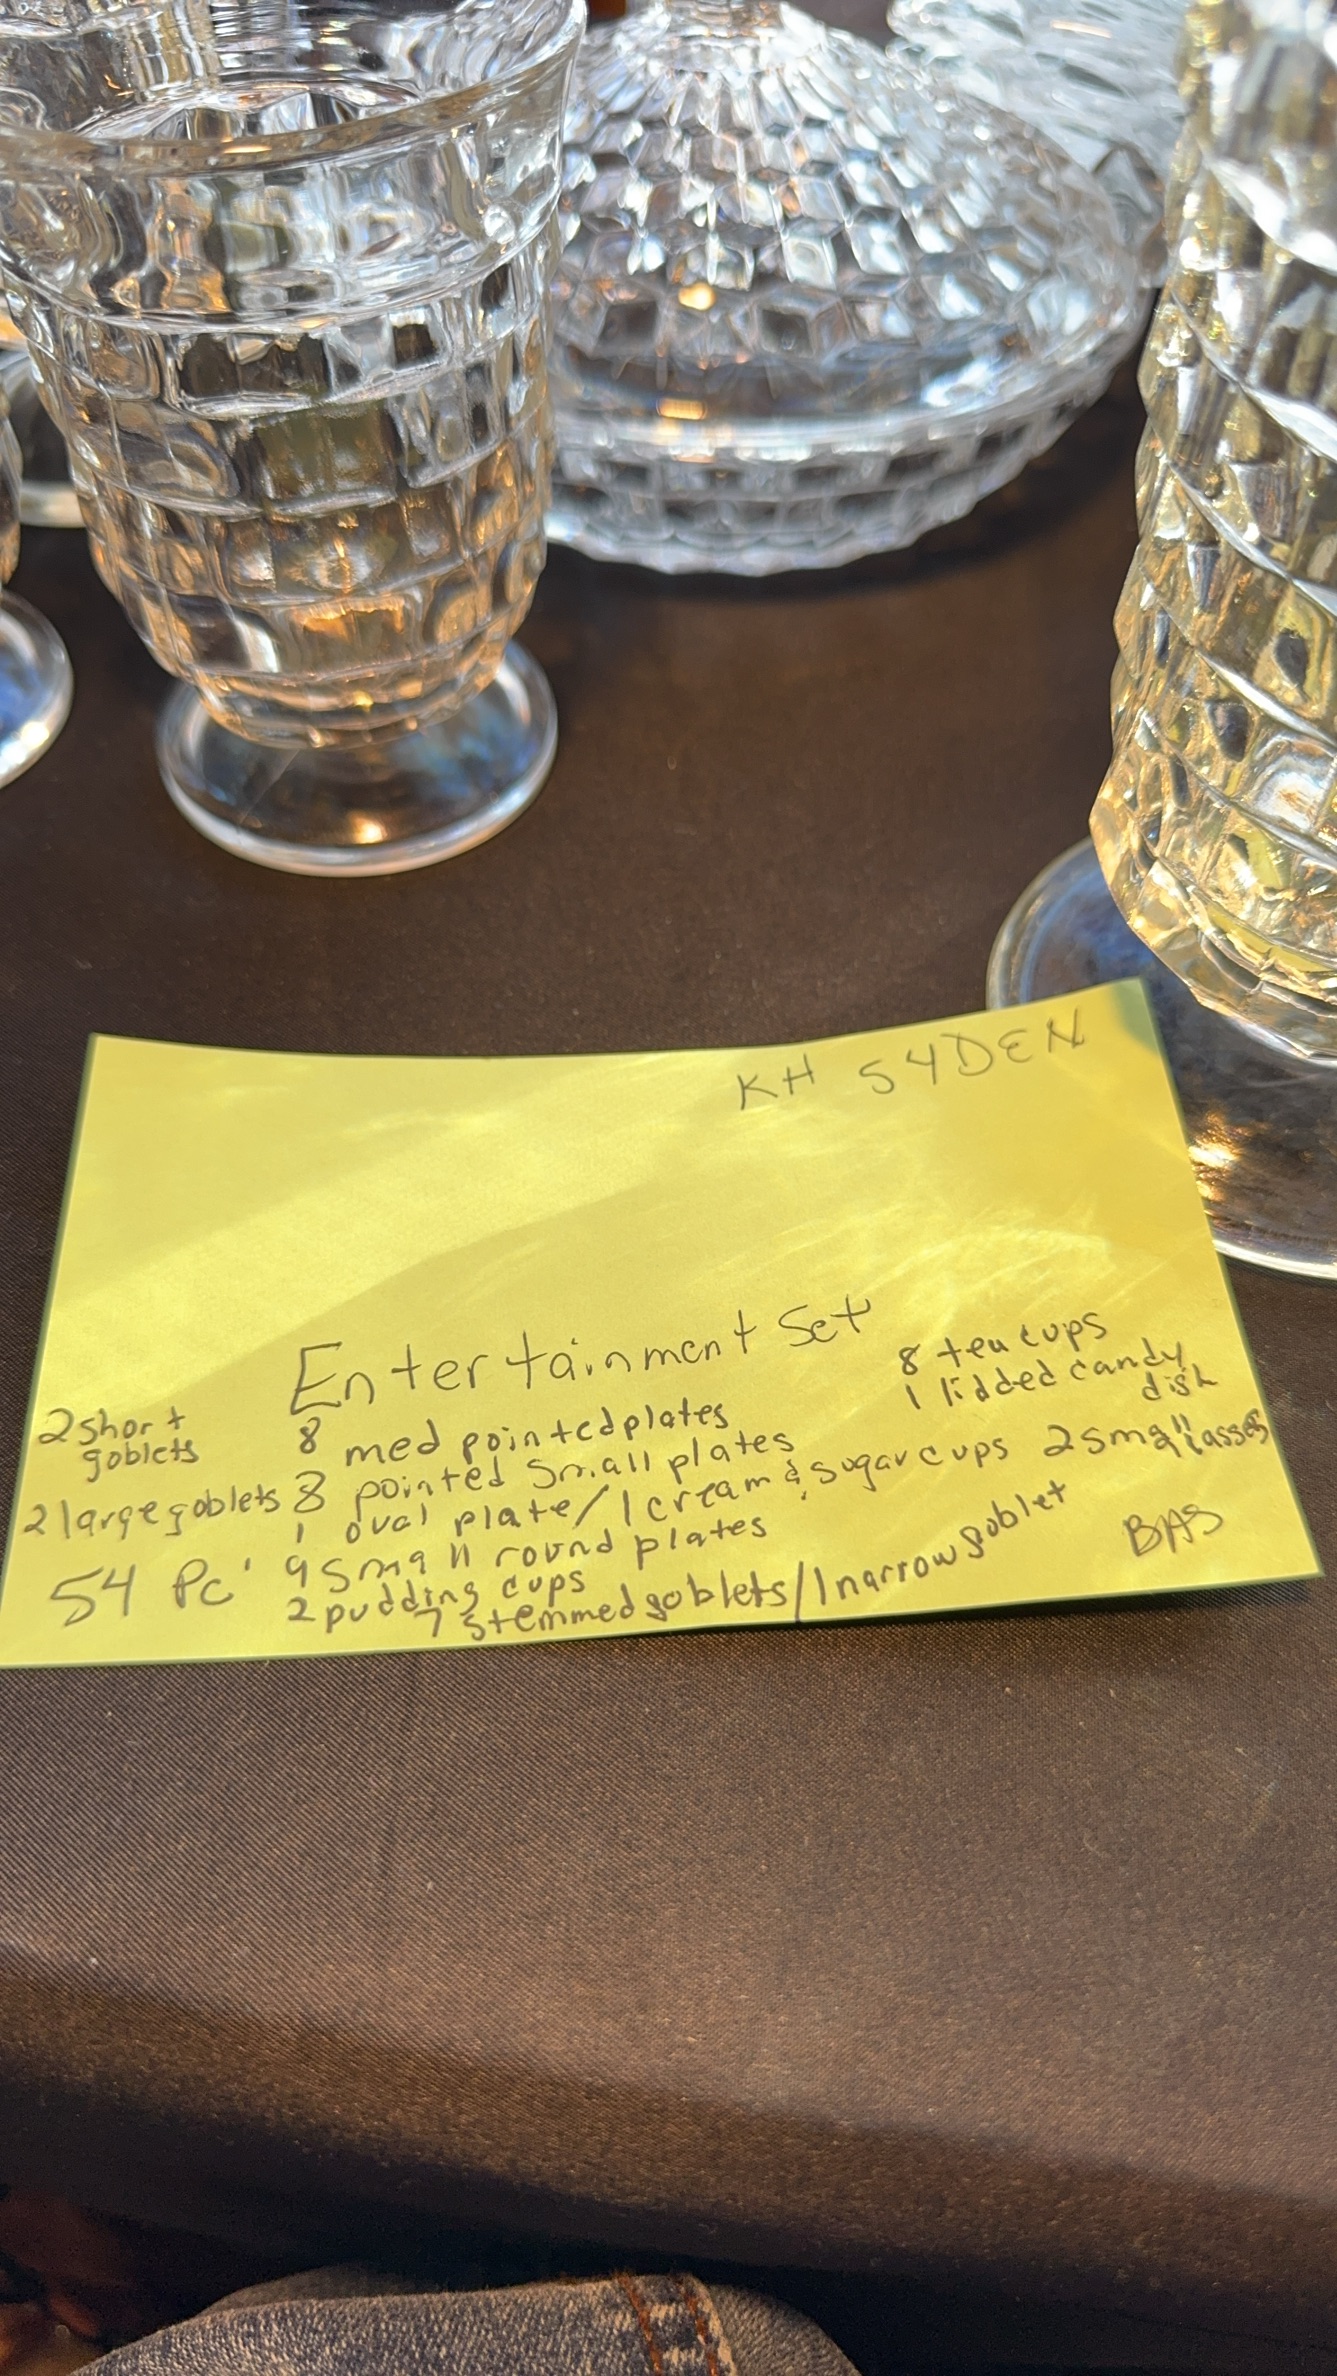 KH 54DEN
Entertainment Set
2 short goblets
8 med pointed plates
8 tea cups
1 lidded candy dish
2 large goblets
8 pointed small plates
1 oval plate / 1 cream & sugar cups
2 small glasses
54 Pc'
9 small round plates
2 pudding cups
7 stemmed goblets / 1 narrow goblet
BAS